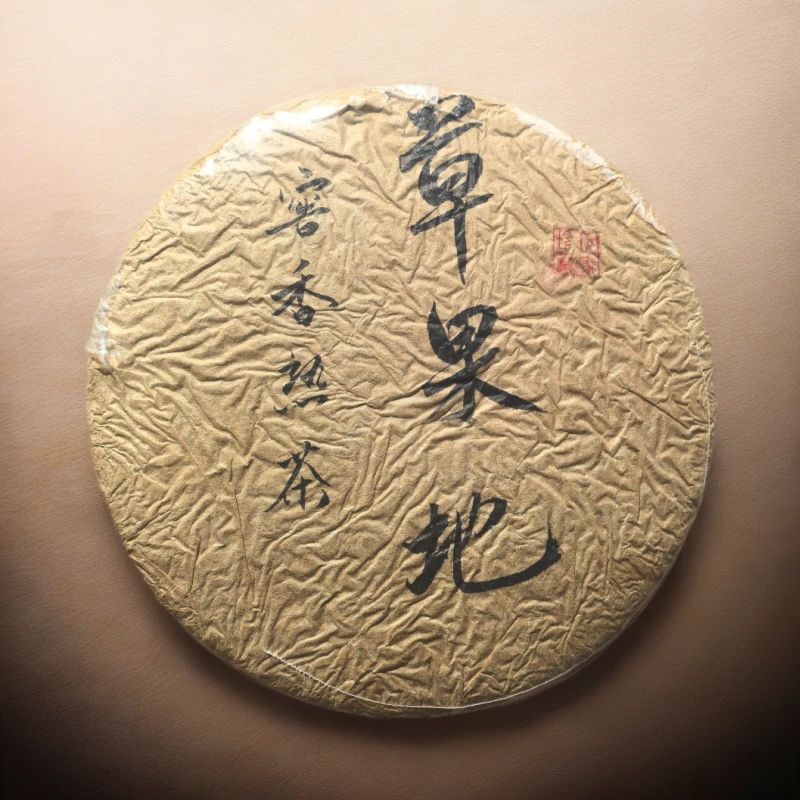 草果地
窖香熟茶